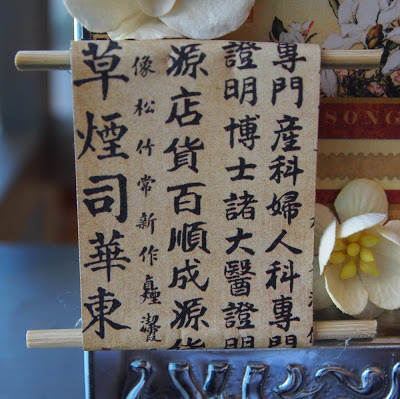 專門産科婦人科專門
證明博士諸大醫證明
源店貨百順成源貨
像松竹常新作
草煙司華東
SONG